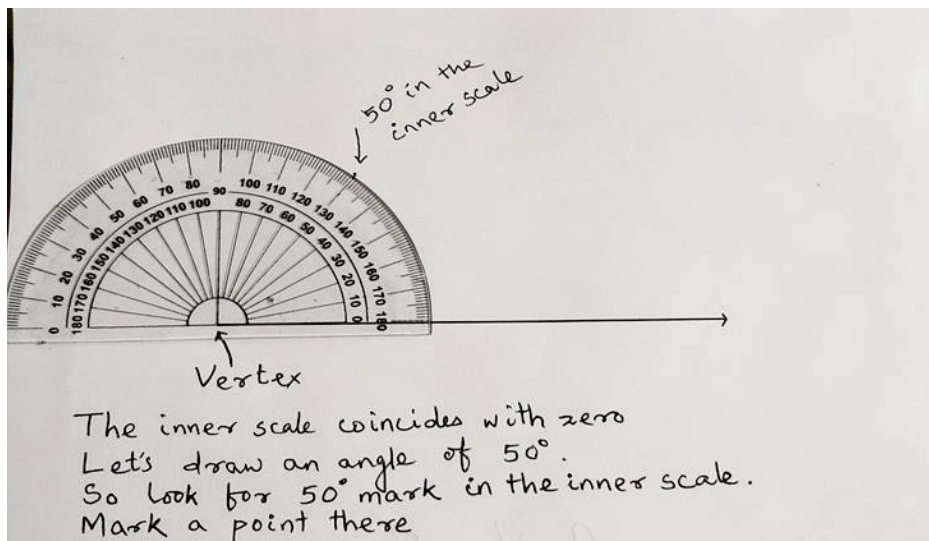 50° in the
inner scale
0 10 20 30 40 50 60 70 80 90 100 110 120 130 140 150 160 170 180
180 170 160 150 140 130 120 110 100 80 70 60 50 40 30 20 10 0
Vertex
The inner scale coincides with zero
Let's draw an angle of 50°.
So look for 50° mark in the inner scale.
Mark a point there